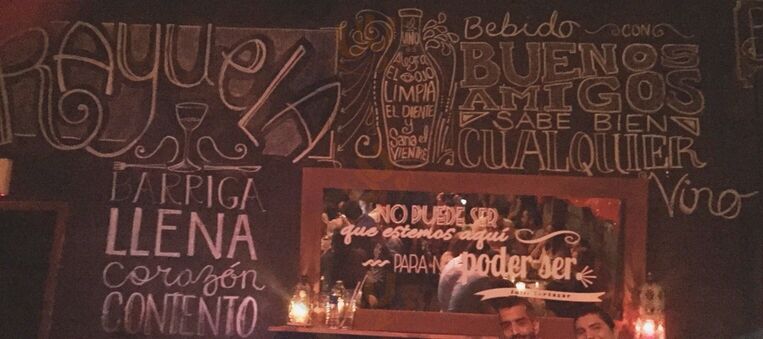 Rayuela
BARRIGA
LLENA
corazón
CONTENTO
El VINO
Alegra
EL OJO
LIMPIA
EL DIENTE
y
Sana el
VIENTRE
Bebido CON
BUENOS
AMIGOS
SABE BIEN
CUALQUIER
Vino
NO PUEDE SER
que estemos aquí
PARA NO poder ser